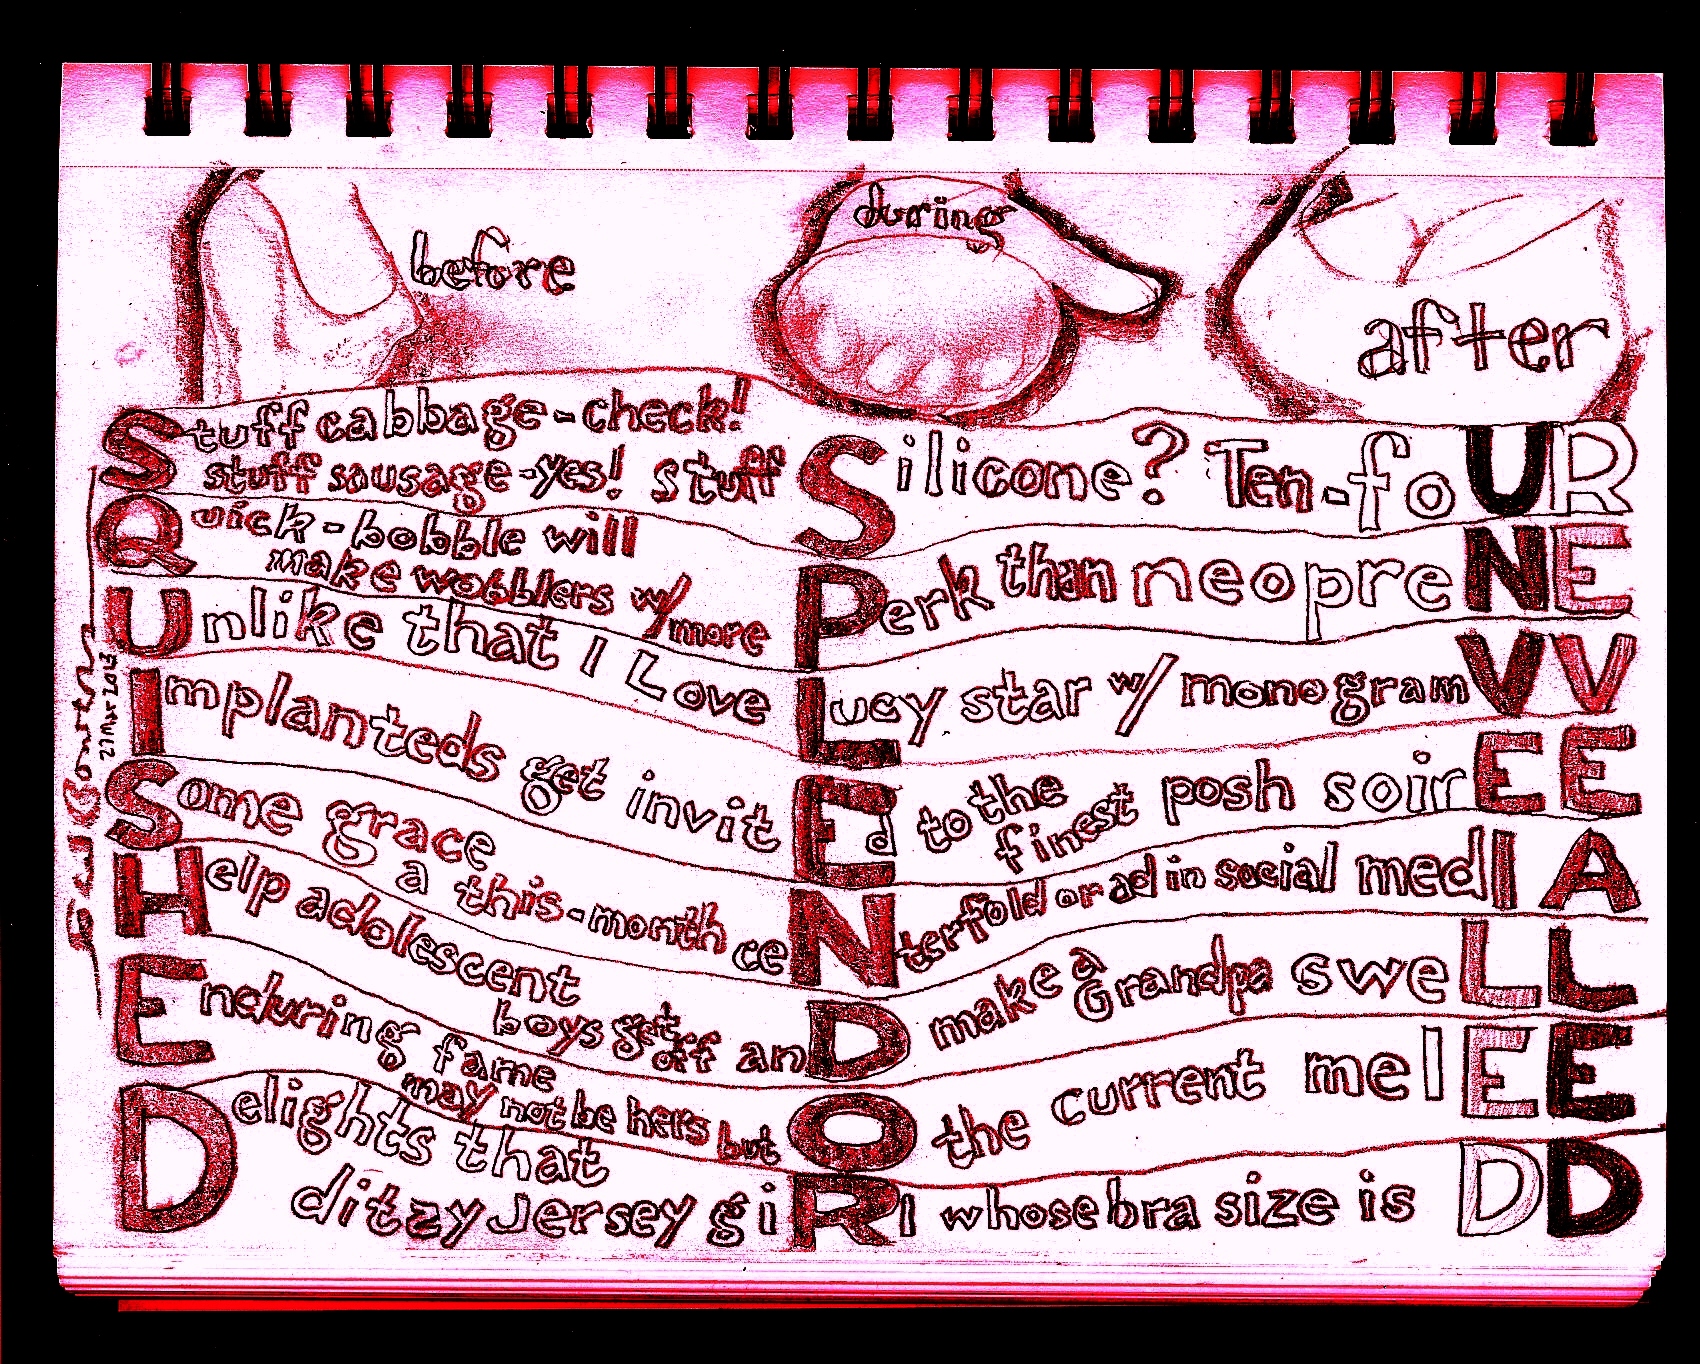 before
during
after
Stuff cabbage-check!
stuff sausage-yes! stuff Silicone? Ten-foUR
Quick-bobble will
make wobblers w/more Perk than neopreNE
Unlike that I Love Lucy star w/ monogramVV
Implanteds get invitEd to the finest posh soirEE
Some grace
a this-month ceNterfold or ad in social medIA
Help adolescent
boys get off anD make a Grandpa sweLL
Enduring fame
may not be hers but O the current melEE
Delights that
ditzy Jersey giRl whose bra size is DD
27 Mar 2013